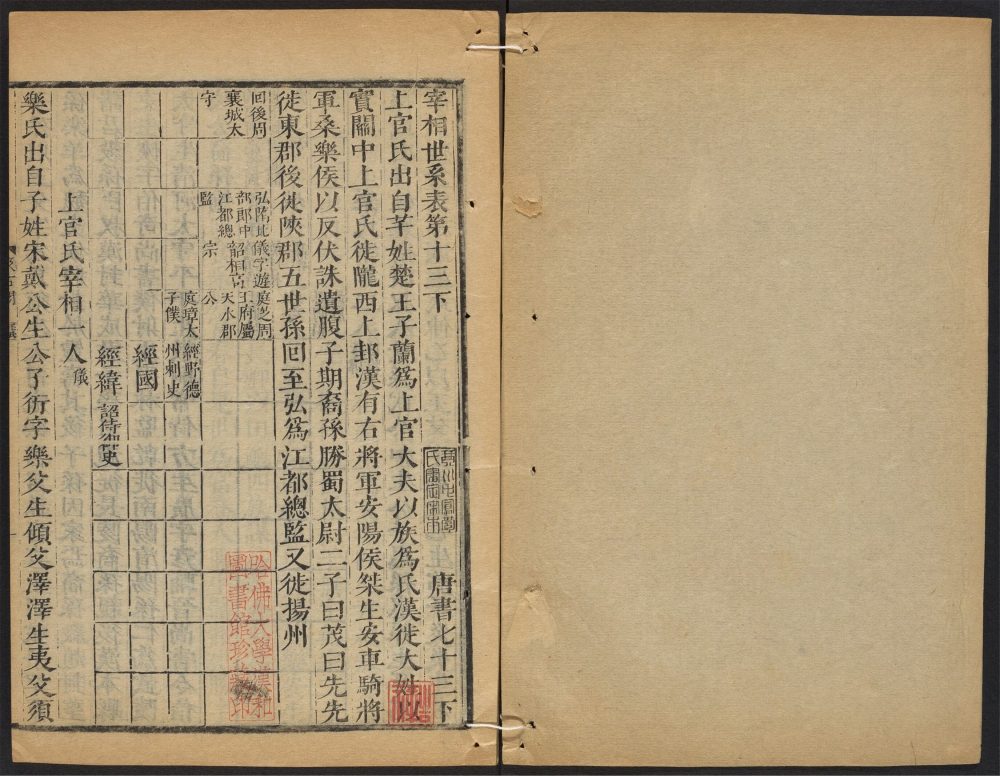 宰相世系表第十三下 唐書七十三下
上官氏出自芊姓楚王子蘭為上官大夫以族為氏漢徙大姓以
實關中上官氏徙隴西上邽漢有右將軍安陽侯桀生安車騎將
軍桑樂侯以反伏誅遺腹子期裔孫勝蜀太尉二子曰茂曰先先
徙東郡後徙陝郡五世孫回至弘為江都總監又徙揚州
回後周
襄城太
守
弘隋比
部郎中
江都總
監
儀字遊
韶相高
宗
庭芝周
王府屬
天水郡
公
庭璋太
子僕
經野德
州刺史
經國
經緯 詔待御史
上官氏宰相一人 儀
樂氏出自子姓宋戴公生公子衎字樂父生傾父澤澤生夷父須
哈佛大學漢和
圖書館珍藏印